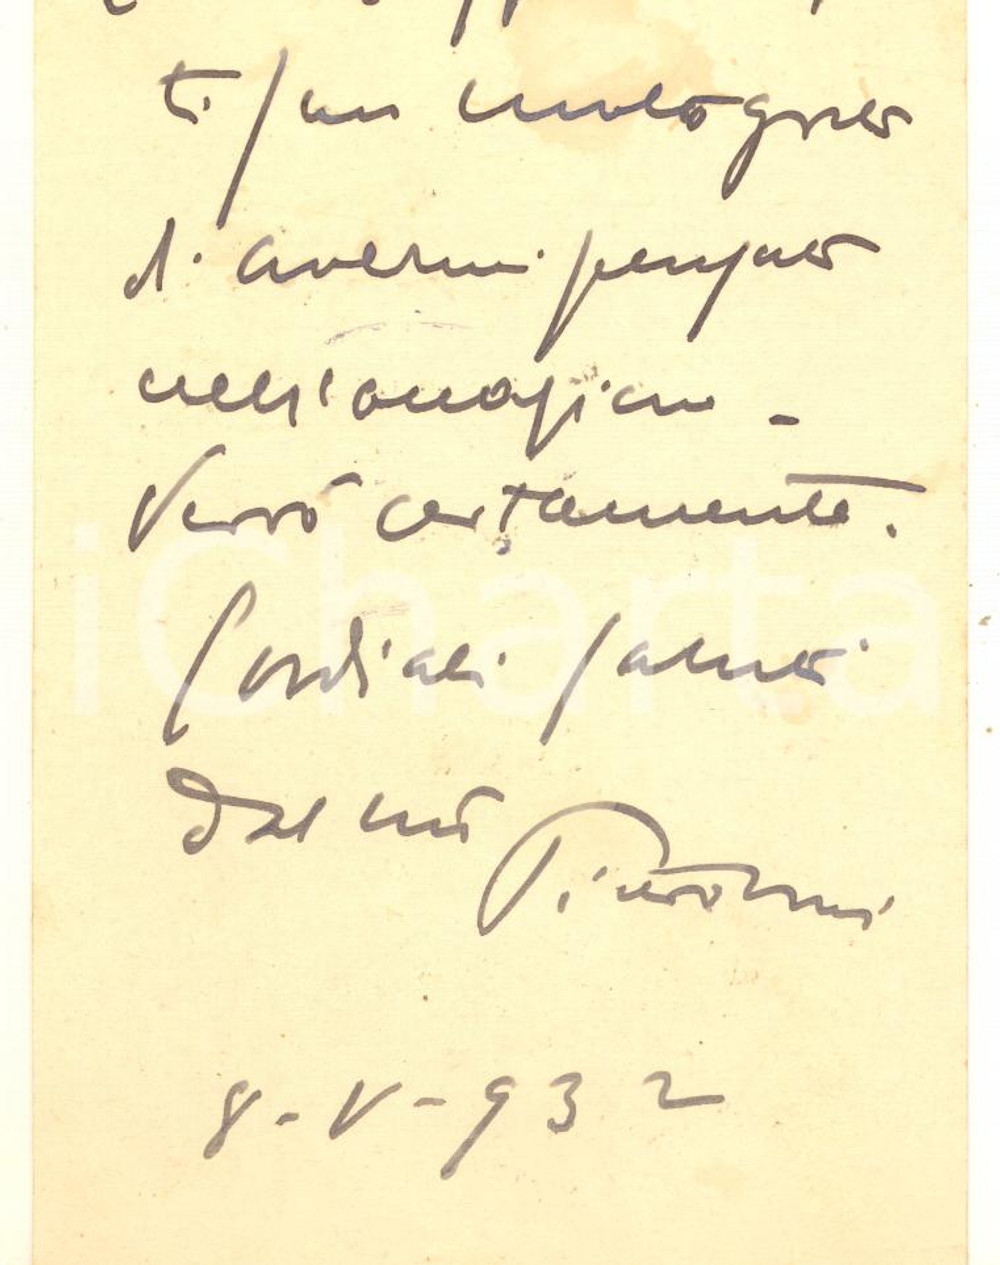 ti son molto grato
di avermi pensato
nell'occasione -
Verrò certamente.
Cordiali saluti
dal tuo
8-V-932
iCharta